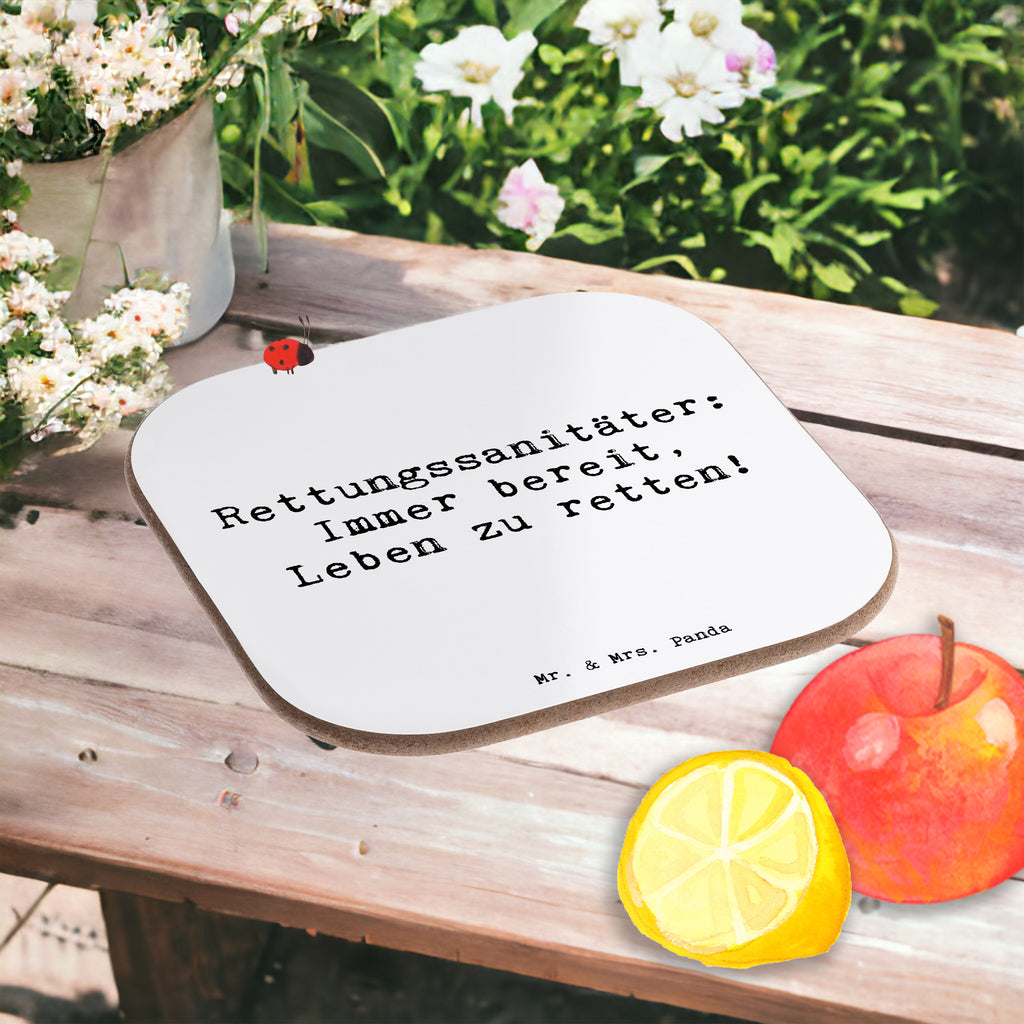 Rettungssanitäter:
Immer bereit,
Leben zu retten!
Mr. & Mrs. Panda